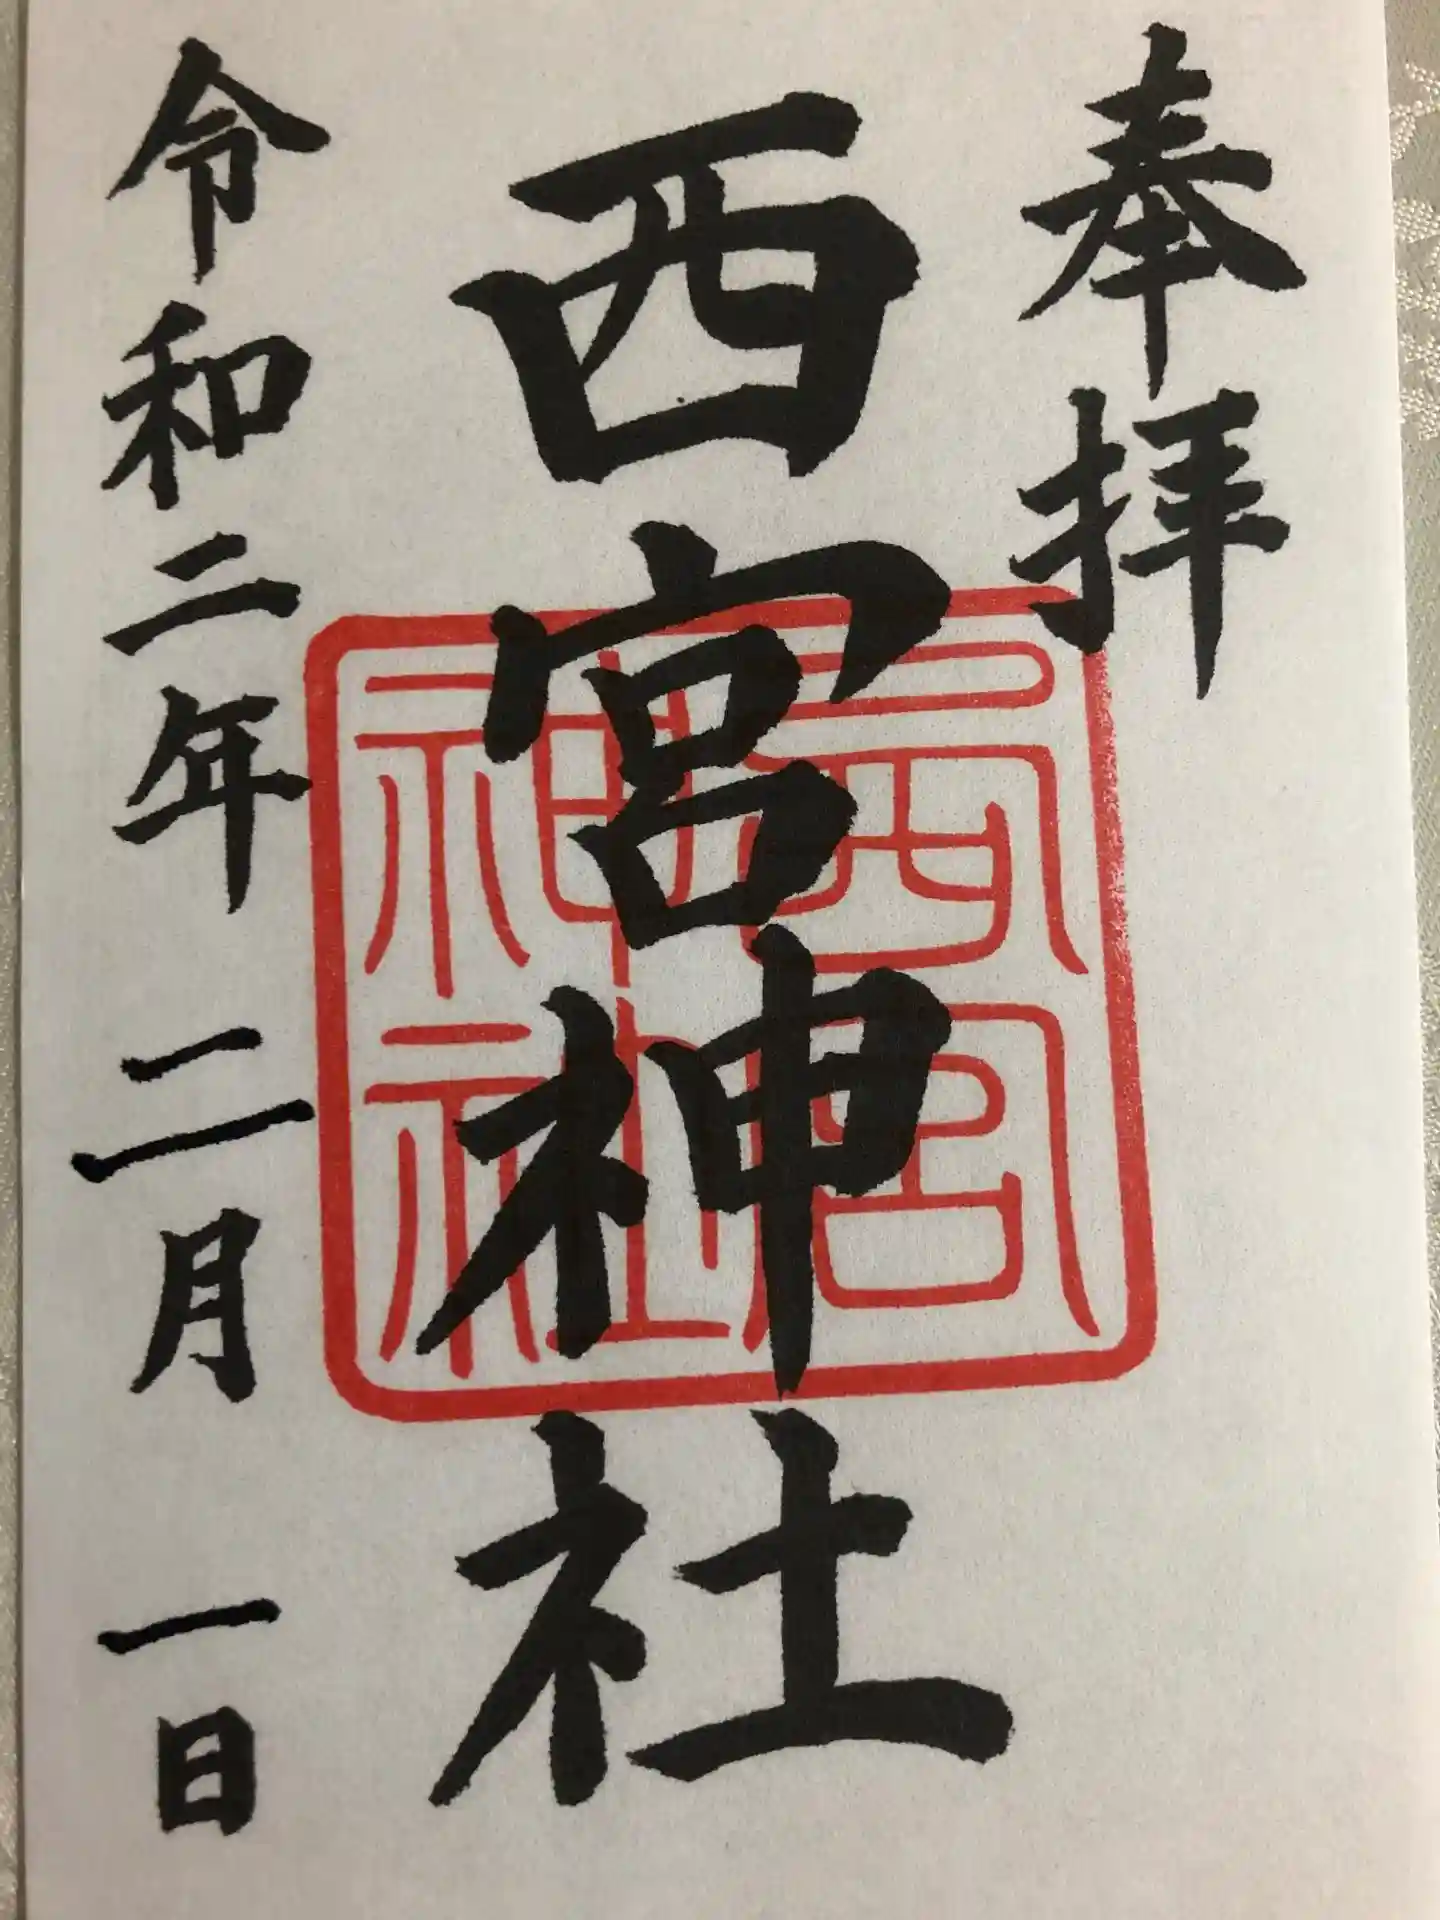 奉拝
西宮神社
西宮
神社
令和二年 二月 一日